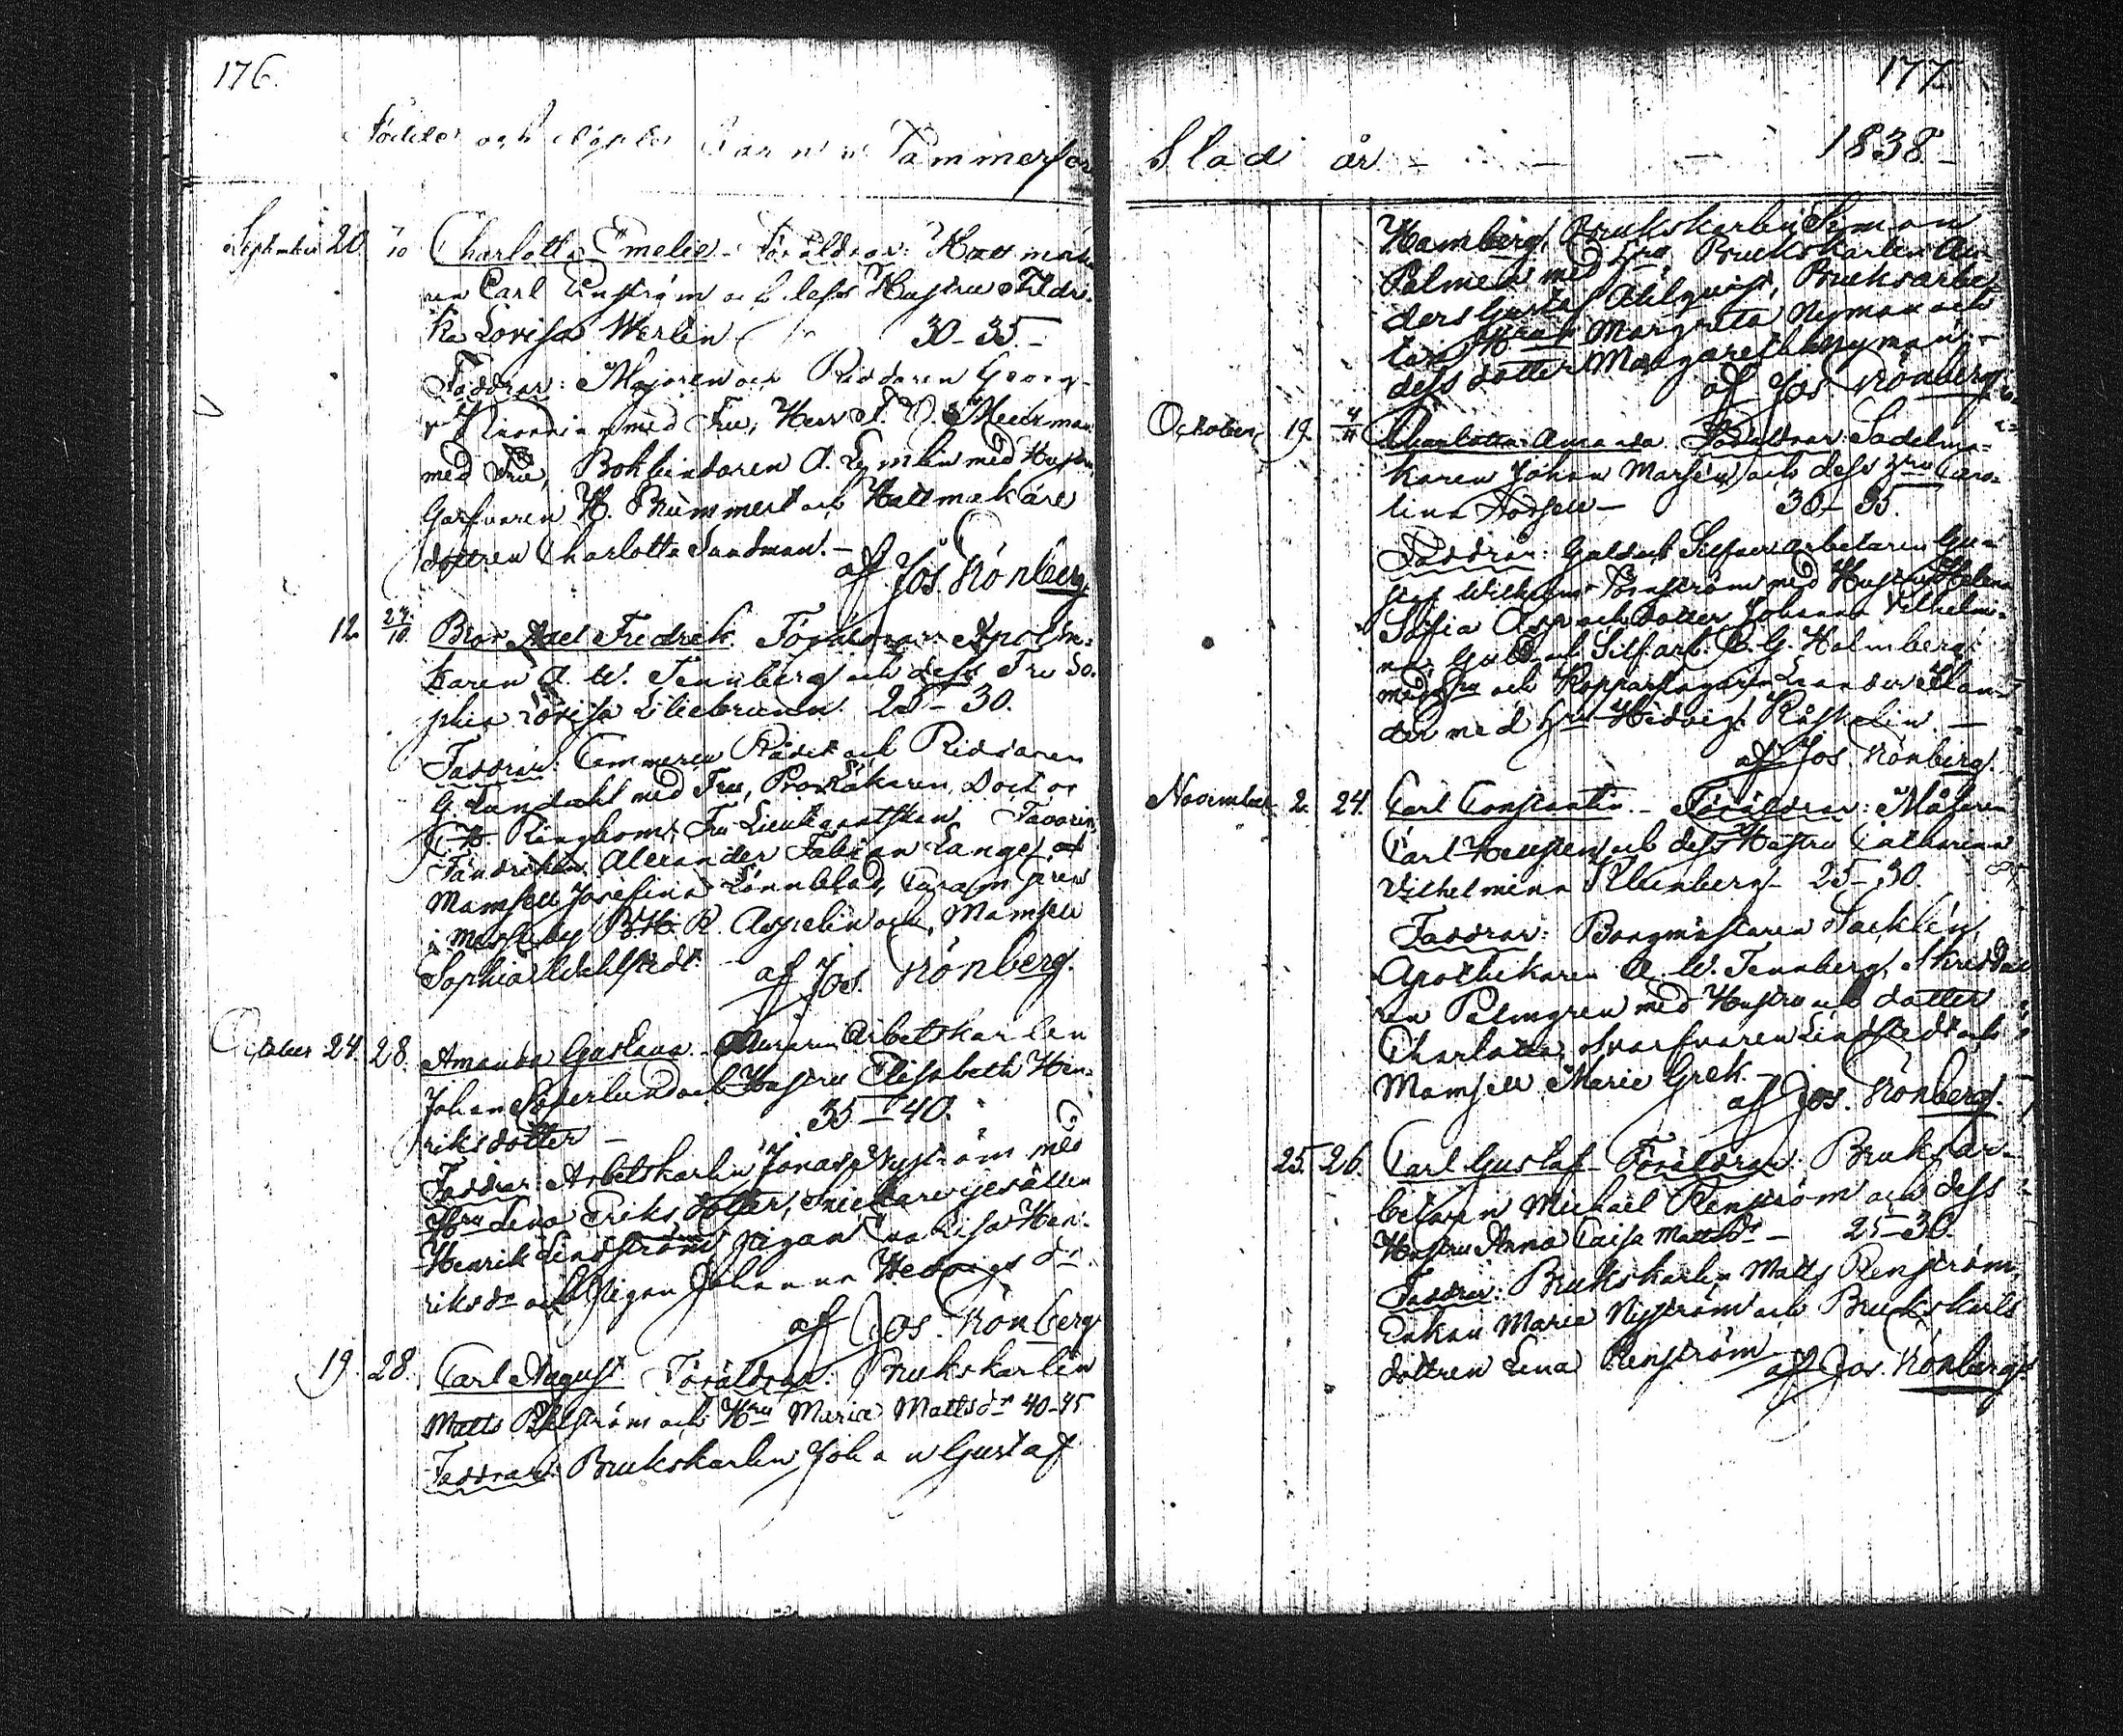 176.
Födde och döpte Barn i Tammerfors
September 20. 7/10 Charlotta Emelie. Föräldrar: Hattmaka-
ren Carl Enström och dess Hustru Fredri-
ka Lovisa Werlin 30-35-
Faddrar: Majoren och Riddaren Georg
med Fru, Herr F. O. Meurman
med Fru, Bokbindaren A. Lymlin med Hustru
Garfvaren H. Brummert och Hattmakare
dottren Charlotta Sandman. -
af Jos. Grönberg.
12. 27/10. Bror Axel Fredrek. Föräldrar: Apothe-
karen A. W. Tennberg och dess Fru So-
phia Lovisa Liliebrunn 25-30.
Faddrar: Commerce Rådet och Riddaren
G. Lundahl med Fru, Prov. Läkaren Doctor
Ringbom, Fru Lieutenantskan Favorin,
Fändriken Alexander Fabian Lange, och
Mamsell Josefina Lönnblad,
i Messuby R. Aspelin och Mamsell
Sophia Wahlstedt.
af Jos. Grönberg.
October 24. 28. Amanda Gustava. Arbetskarlen
Johan Söderlund och Hustru Elisabeth Hen-
riksdotter - 35-40.
Faddrar: Arbetskarlen Jonas Nyström med
Hru Lena Eriks dotter, Snickare gesällen
Henrik Lindström, Pigan Lisa Hen-
riksdr och Pigan Johanna Hedvigs dr.
af Jos. Grönberg
19. 28. Carl August. Föräldrar: Brukskarlen
Matts och Hru Maria Mattsdr 40-45
Faddrar: Brukskarlen Johan Gustaf
177.
Stad år - - - 1838-
Hamberg, Brukskarlen Symon
Palmen med Hru, Brukskarlen An-
ders Gustaf Ahlqvist, Bruksarbe-
Margreta Nyman och
dess dotter Margareth Nyman. -
af Jos. Grönberg.
October 19. 4/11 Charlotta Amanda. Föräldrar: Sadelma-
karen Johan Marsén och dess Hru Caro-
lina 30-35.
Faddrar: Guld och Silfverarbetaren Gus-
taf Wilhelm Törnström med Hustru Helena
Sofia och dotter Johanna Vilhelmi-
na, Guld och Silf. arb. C. G. Holmberg
med Hru och Kopparslagaren
der med Hru Hedvig -
af Jos. Grönberg.
November 2. 24. Carl Constantin. - Föräldrar: Målaren
Carl och dess Hustru Catharina
Vilhelmina 25-30.
Faddrar: Borgmästaren Tacklén,
Apothekaren A. W. Tennberg, Skredda-
ren Palmgren med Hustru och dotter
Charlotta, Svarfvaren Lindstedt och
Mamsell Marie Grek. -
af Jos. Grönberg.
25. 26. Carl Gustaf- Föräldrar: Bruksar-
betaren Michael Renström och dess
Hustru Anna Caisa Mattsdr - 25-30.
Faddrar: Brukskarlen Matts Renström,
Enkan Maria Nyström och Brukskarls
dottren Lena Renström
af Jos. Grönberg.